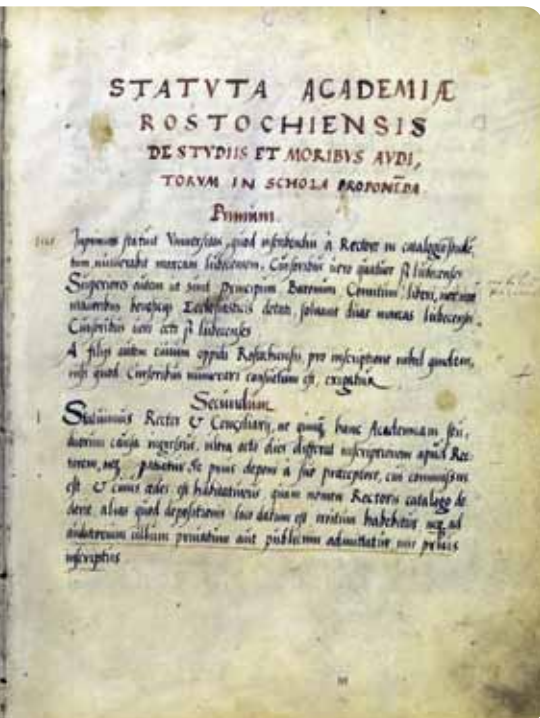 STATVTA ACADEMIÆ
ROSTOCHIENSIS
DE STVDIIS ET MORIBVS AVDI,
TORVM IN SCHOLA PROPONĒDA.
Primum.
Inprimis statuit Vniversitas, quod inscribendus à Rectore in catalogū stude,
tum, numerabit marcam lubecensem, Cursoribus uero quatuor ß lubecenses
Superiores autem ut sunt Principum Baronum Comitum liberi,
maioribus beneficijs Ecclesiasticis dotati, soluant duas marcas lubecenses.
Cursoribus uero octo ß lubecenses
A filijs autem ciuium oppidi Rostochiensis, pro inscriptione nihil quidem,
nisi quod Cursoribus numerari consuetum est, exigatur.
Secundum.
Statuimus Rector & Conciliarij, ne quisq̨ hanc Academiam stu,
diorum causa ingressus, ultra octo dies differat inscriptionem apud Rec
torem, neq̨ patiatur se prius deponi à suo præceptore, cui commissus
est & cuius ædes est habitaturus quam nomen Rectoris catalogo de
derit, alias quod depositionis loco datum est irritum habebitur, neq̨ ad
auditorium ullum priuatum aut publicum admittatur nisi prius
inscriptus